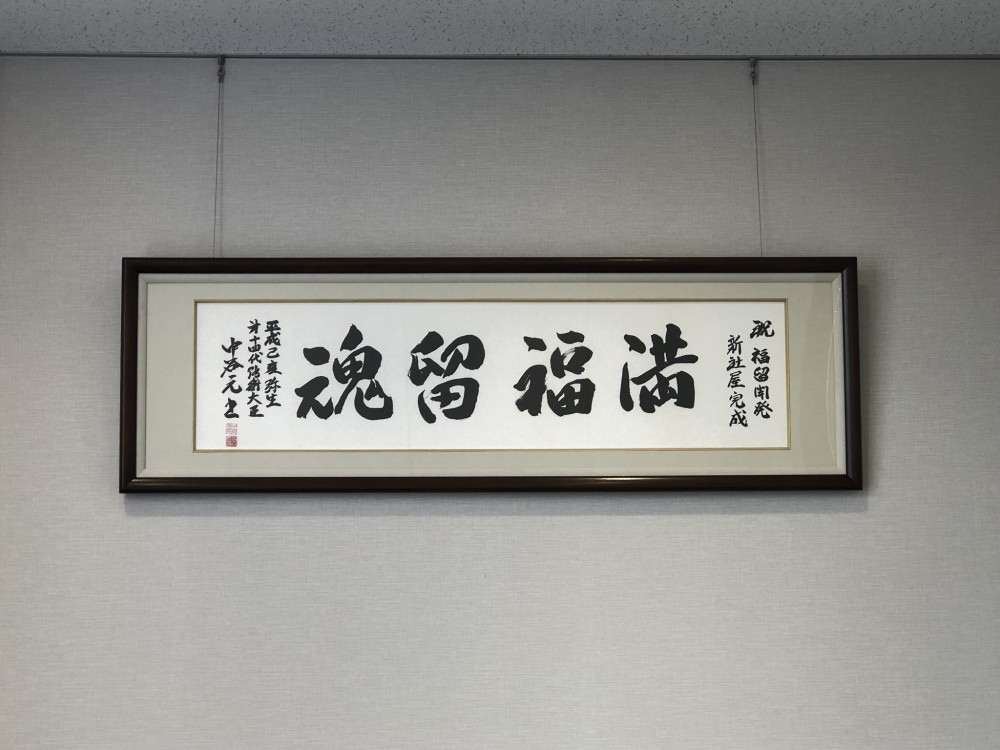 祝 福留開発
新社屋完成
満福留魂
平成己亥弥生
第十四代防衛大臣
中谷元書